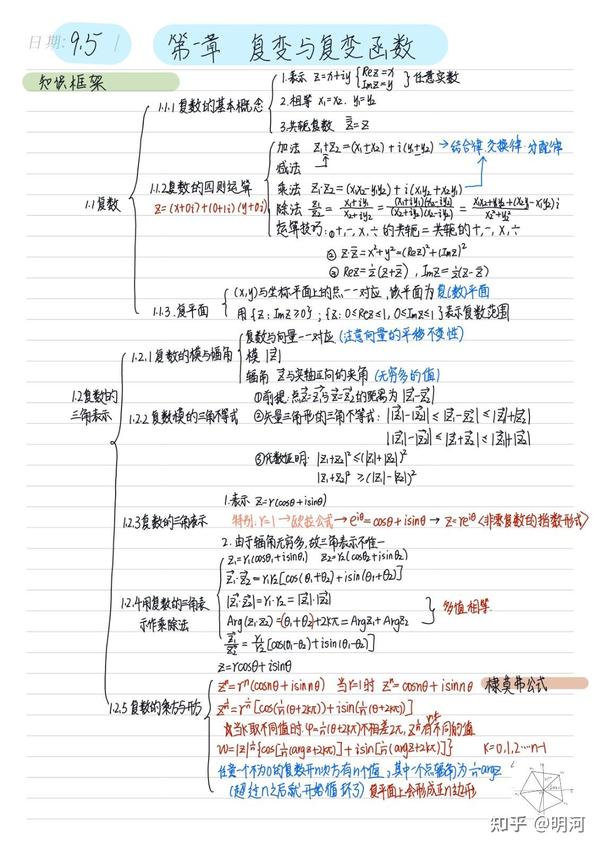 日期: 9.5
第一章 复变与复变函数
知识框架
1.1 复数
1.1.1 复数的基本概念
1.表示 z=x+iy { Rez=x Imz=y } 任意实数
2.相等 x₁=x₂. y₁=y₂
3.共轭复数
1.1.2 复数的四则运算
z=(x+0i)+(0+1i)(y+0i)
加法 z₁±z₂=(x₁±x₂)+i(y₁±y₂) →结合律.交换律.分配律
减法
乘法 z₁·z₂=(x₁x₂-y₁y₂)+i(x₁y₂+x₂y₁)
除法 z₁/z₂ = (x₁+iy₁)/(x₂+iy₂) = (x₁+iy₁)(x₂-iy₂)/(x₂+iy₂)(x₂-iy₂)
运算技巧: ①+,-,×,÷的共轭=共轭的+,-,×,÷
② z·z̄=x²+y²=(Rez)²+(Imz)²
③ Rez=½(z+z̄),
1.1.3.复平面
(x,y)与坐标平面上的点一一对应,
平面为复(数)平面
用{z:Imz≥0};{z:0≤Rez≤1,0≤Imz≤1}表示复数范围
1.2复数的三角表示
1.2.1复数的模与辐角
复数与向量一一对应(注意向量的平移不变性)
模 |z|
辐角 z与实轴正向的夹角(无穷多的值)
1.2.2 复数模的三角不等式
①前提:点z=z₁与z=z₂的距离为|z₁-z₂|
②矢量三角形的三角不等式: ||z₁|-|z₂||≤|z₁-z₂|≤|z₁|+|z₂|
||z₁|-|z₂||≤|z₁+z₂|≤|z₁|+|z₂|
③代数证明: |z₁+z₂|²≤(|z₁|+|z₂|)²
|z₁+z₂|²≥(|z₁|-|z₂|)²
1.2.3复数的三角表示
1.表示 z=r(cosθ+isinθ)
特别.r=1→欧拉公式→e^{iθ}=cosθ+isinθ→z=re^{iθ}<非零复数的指数形式>
2.由于辐角无穷多,故三角表示不唯一
1.2.4用复数的三角表示作乘除法
z₁=r₁(cosθ₁+isinθ₁) z₂=r₂(cosθ₂+isinθ₂)
z₁·z₂=r₁r₂[cos(θ₁+θ₂)+isin(θ₁+θ₂)]
|z₁·z₂|=r₁·r₂=|z₁|·|z₂|
Arg(z₁z₂)=(θ₁+θ₂)+2kπ=Argz₁+Argz₂ }多值相等.
z₁/z₂=r₁/r₂[cos(θ₁-θ₂)+isin(θ₁-θ₂)]
1.2.5复数的乘方与开方
z=rcosθ+isinθ
zⁿ=rⁿ(cosnθ+isinnθ) 当r=1时 zⁿ=cosnθ+isinnθ 棣莫弗公式
z^{1/n}=r^{1/n}[cos(1/n(θ+2kπ))+isin(1/n(θ+2kπ)]
当k取不同值时.φ=1/n(θ+2kπ)不相差2π,z^{1/n}有不同的值
w=|z|^{1/n}{cos[1/n(argz+2kπ)]+isin[1/n(argz+2kπ)]} k=0,1,2…n-1
任意一个不为0的复数开n次方有n个值,其中一个
辐角为1/n argz
(超过n之后就开始循环了) 复平面上会形成正n边形
知乎 @明河